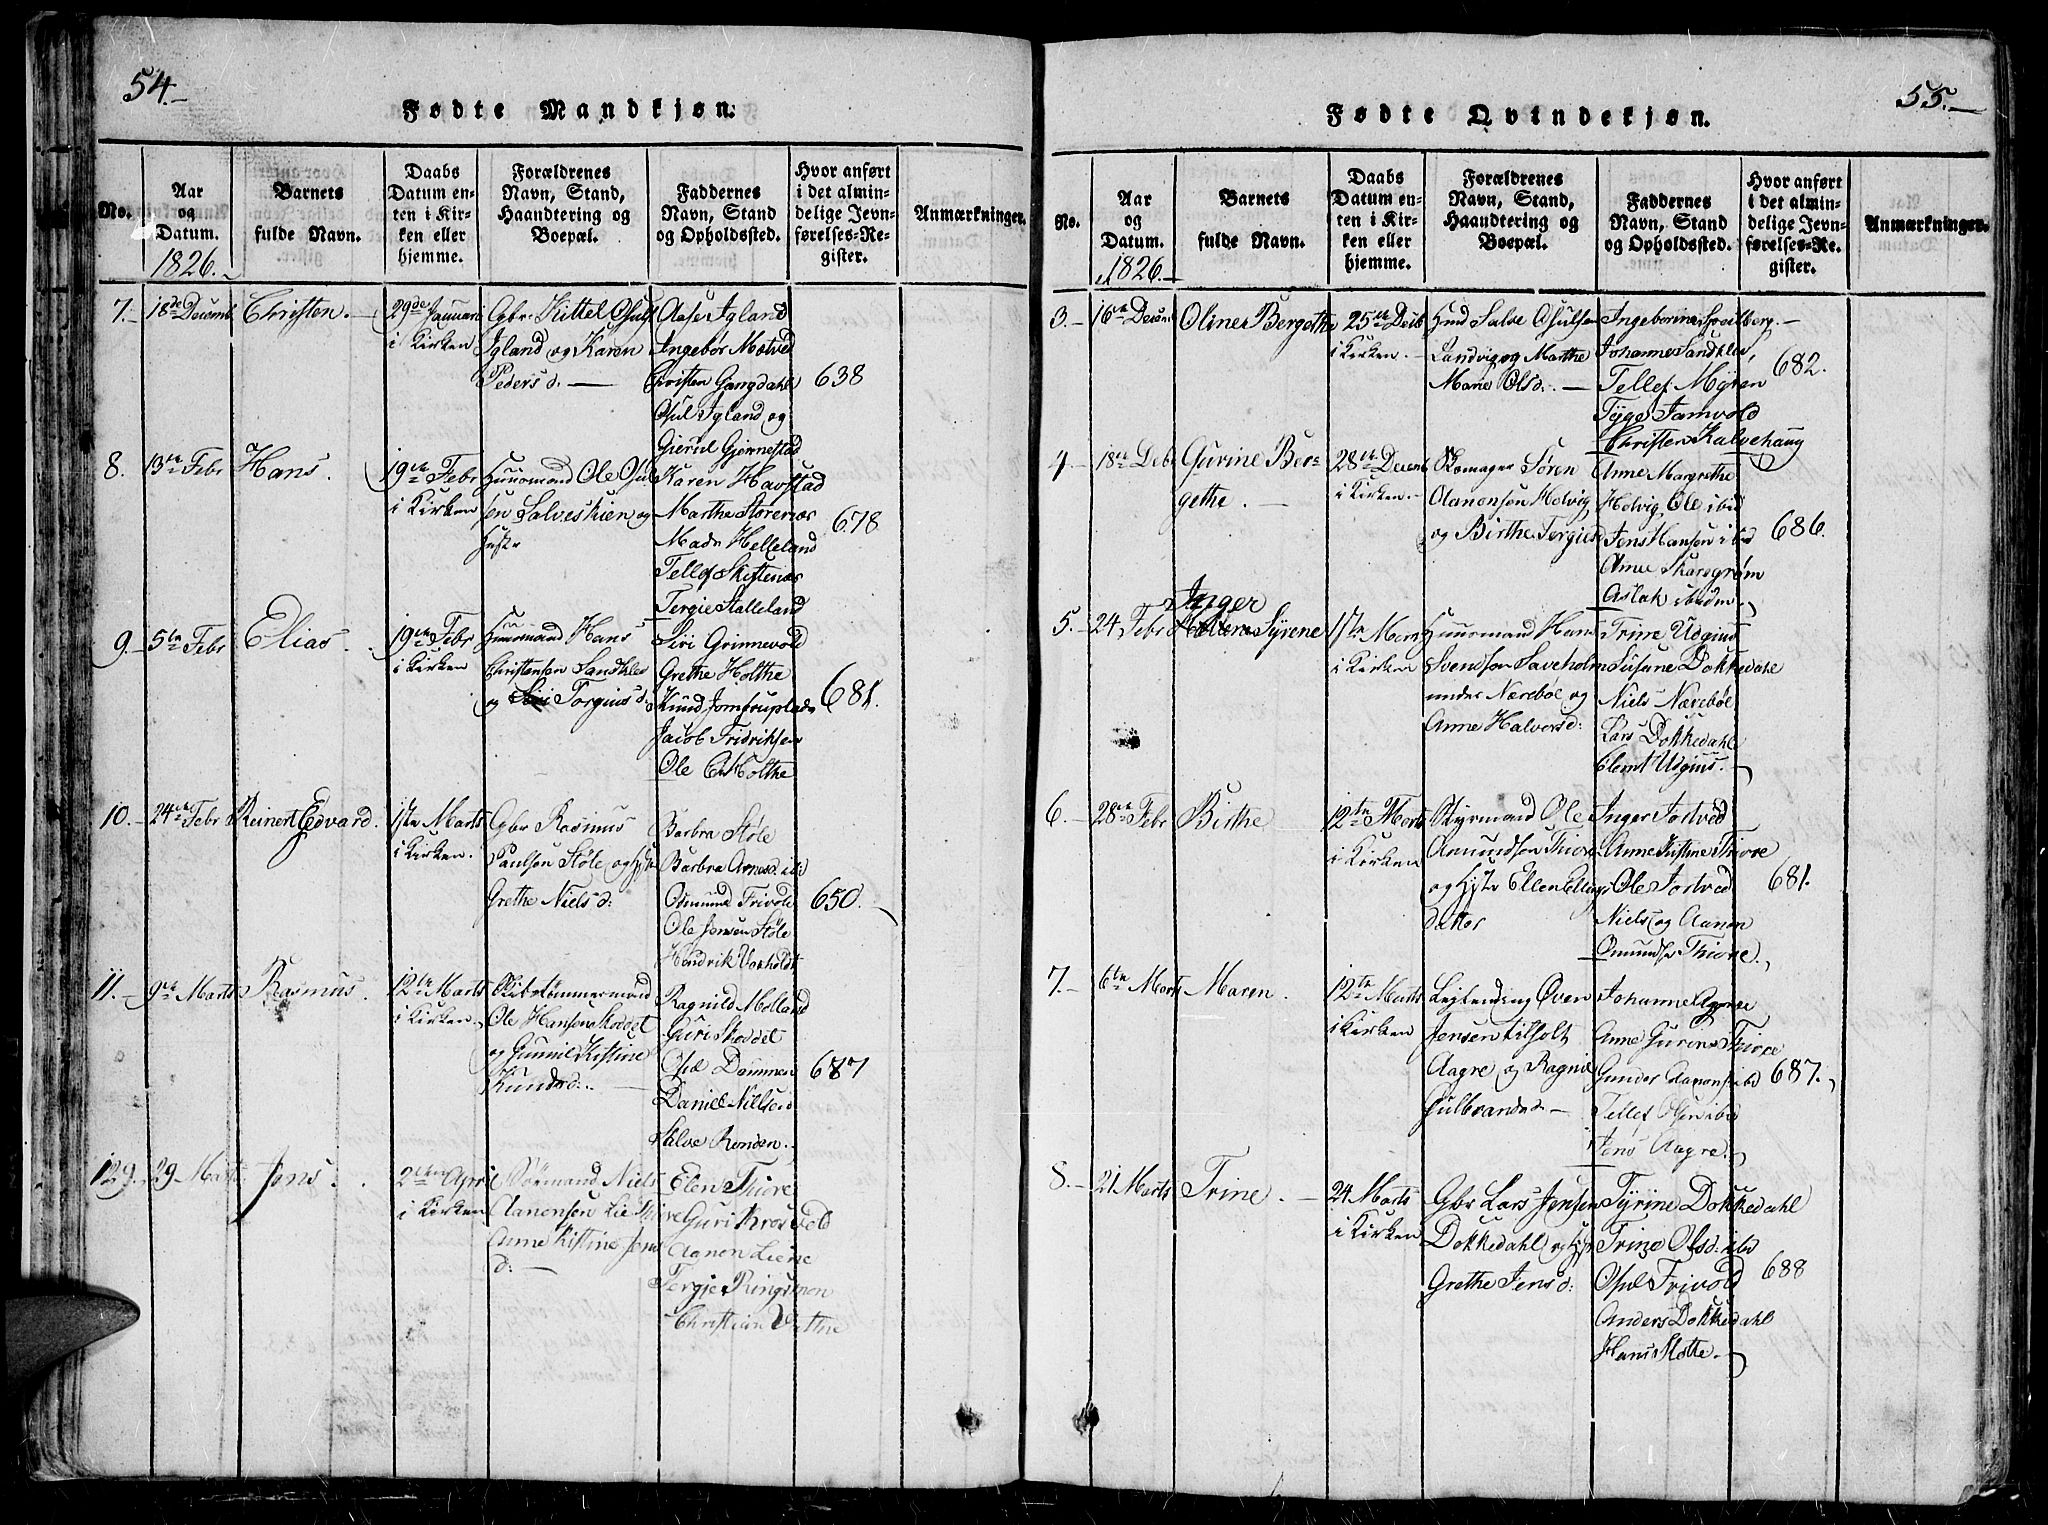 54.
Fødte Mandkjøn.
No.
Aar
og
Datum.
1826.
Barnets
fulde Navn.
Daabs
Datum en-
ten i Kir-
ken eller
hjemme.
Forældrenes
Navn, Stand,
Haandtering og
Boepæl.
Faddernes
Navn, Stand
og Opholdssted.
Hvor anført
i det almin-
delige Jevn-
førelses-Re-
gister.
Anmærkninger.
7.
18de Decemb
Christen.
29de Januari
i Kirken
Gbr. Kittel Osuls
Igland og Karen
Peders d:
Aase Igland
Ingebor Molved
Christen Gangdahl
Osul Igland og
Gjerul Gjennestad
638
8.
13te Febr
Hans.
19te Febr
i Kirken
Huusmand Ole Osul
sen Salveskien og
Hustr
Karen Havstad
Marthe Storenæs
Mads Helleland
Tellef Skiftenæs
Tergie Stalleland
678
9.
5te Febr
Elias.
19te Febr
i Kirken
Huusmand Hans
Christensen Sandklev
og Torgius d:
Siri Grinnevold
Grethe Holthe
Knud Jomfruplads
Jacob Fridriksen
Ole Holthe
681.
10.
24de Febr
Reinert Edvard.
1ste Marts
i Kirken.
Gbr Rasmus
Paulsen Støle og Hstr
Grethe Niels d:
Barbra Støle
Barbra Arnesd. ibd
Osmund Frivold
Ole Jensen Støle
Hendrik Vaxholdt
650.
11.
9de Marts
Rasmus.
12te Marts
i Kirken.
Skibstømmermand
Ole Hansen Skoddet
og Gunnil Kistine
Knuds d:
Ragnild Molland
Guri Skoddet
Osul Dammen
Daniel Nielsen
Salve Rønden.
687
129.
29 Marts
Jens.
2den April
i Kirken
Sørmand Niels
Aanonsen Lie Thore
Anne Kistine Jens
d:
Elen Thore
Guri Krosvold
Aanon Liene
Tergje Ringsmon
Christian Vatne
55.
Fødte Qvindekjøn.
No.
Aar
og
Datum.
1826.
Barnets
fulde Navn.
Daabs
Datum en-
ten i Kir-
ken eller
hjemme.
Forældrenes
Navn, Stand,
Haandtering og
Boepæl.
Faddernes
Navn, Stand
og Opholdssted.
Hvor anført
i det almin-
delige Jevn-
førelses-Re-
gister.
Anmærkninger.
3.
16de Decemb
Oline Bergethe
25de Decb
i Kirken.
Hmd Salve Osulsen
Landvig og Marthe
Marie Ols d:
Ingeborine Speilberg.
Johanne Sandklev,
Tellef Myren
Tyge Jamvold
Christen Kalvehaug
682.
4.
18de Deb
Gurine Ber=
gethe.
28de Decemb
i Kirken.
Skomager Søren
Aanonsen Holvig
og Birthe Tergiesd
Anne Margrethe
Holvig, Ole ibid
Jens Hansen ibid
Anne Skarsgrøm
Aslak ibidem.
686.
5.
24 Febr
Inger
Syrene
1ste Mars
i Kirken
Huusmand Hans
Svendsen Saveholm
under Nærebøe og
Anne Halvorsd:
Trine Udgius
Susane Dokkedahl
Niels Nærebøe
Lars Dokkedahl
Clemt Udgius.
6.
28de Febr
Birthe
12te Marts
i Kirken
Styrmand Ole
Omundsen Thore
og Hstr Ellen Ellings
datter
Inger Tostved
Anne Kistine Thore
Ole Tostved
Niels og Aanon
Omunds. Thore.
681.
7.
6te Marts
Maren.
12te Marts
i Kirken
Leilending Øven
Jensen tilholt
Aagre og Ragnil
Gulbrands d
Johanne Agere
Anne Gurine Thore
Gunder Aanons. ibd
Tellef Olsen ibid
Jens Aagre.
687.
8.
21 Marts
Trine.
24 Marts
i Kirken
Gbr Lars Jensen
Dokkedahl og Hstr
Grethe Jens d:
Tyrine Dokkedahl
Trine Olsd. ibd
Osul Frivold
Anders Dokkedahl
Hans Slotte.
688